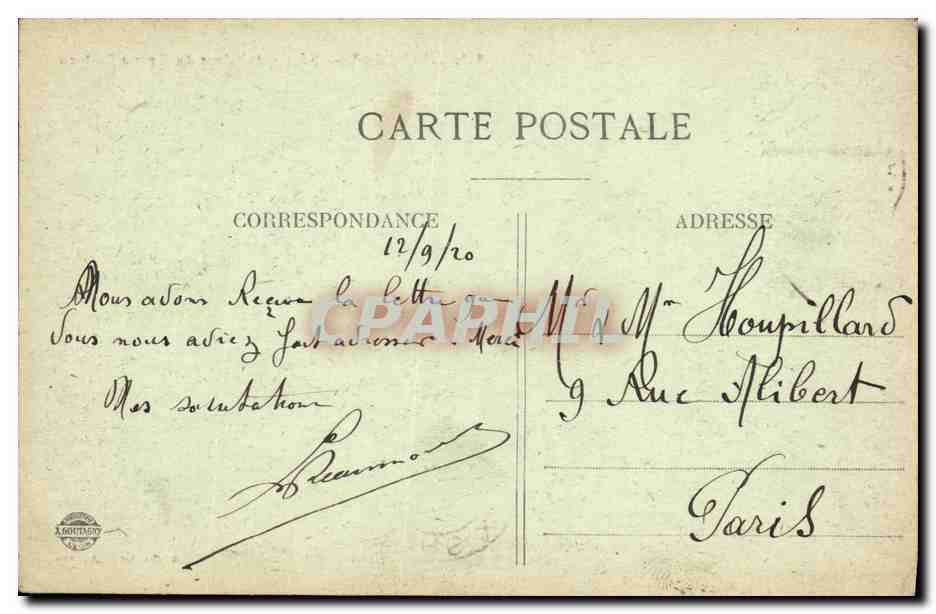 CARTE POSTALE
CORRESPONDANCE
12/9/20
Nous avons Reçue la lettre que
vous nous aviez fait adresser. Merci
Mes salutations
ADRESSE
Mr & Mme Houpillard
9 Rue Alibert
Paris
CPAPHIL